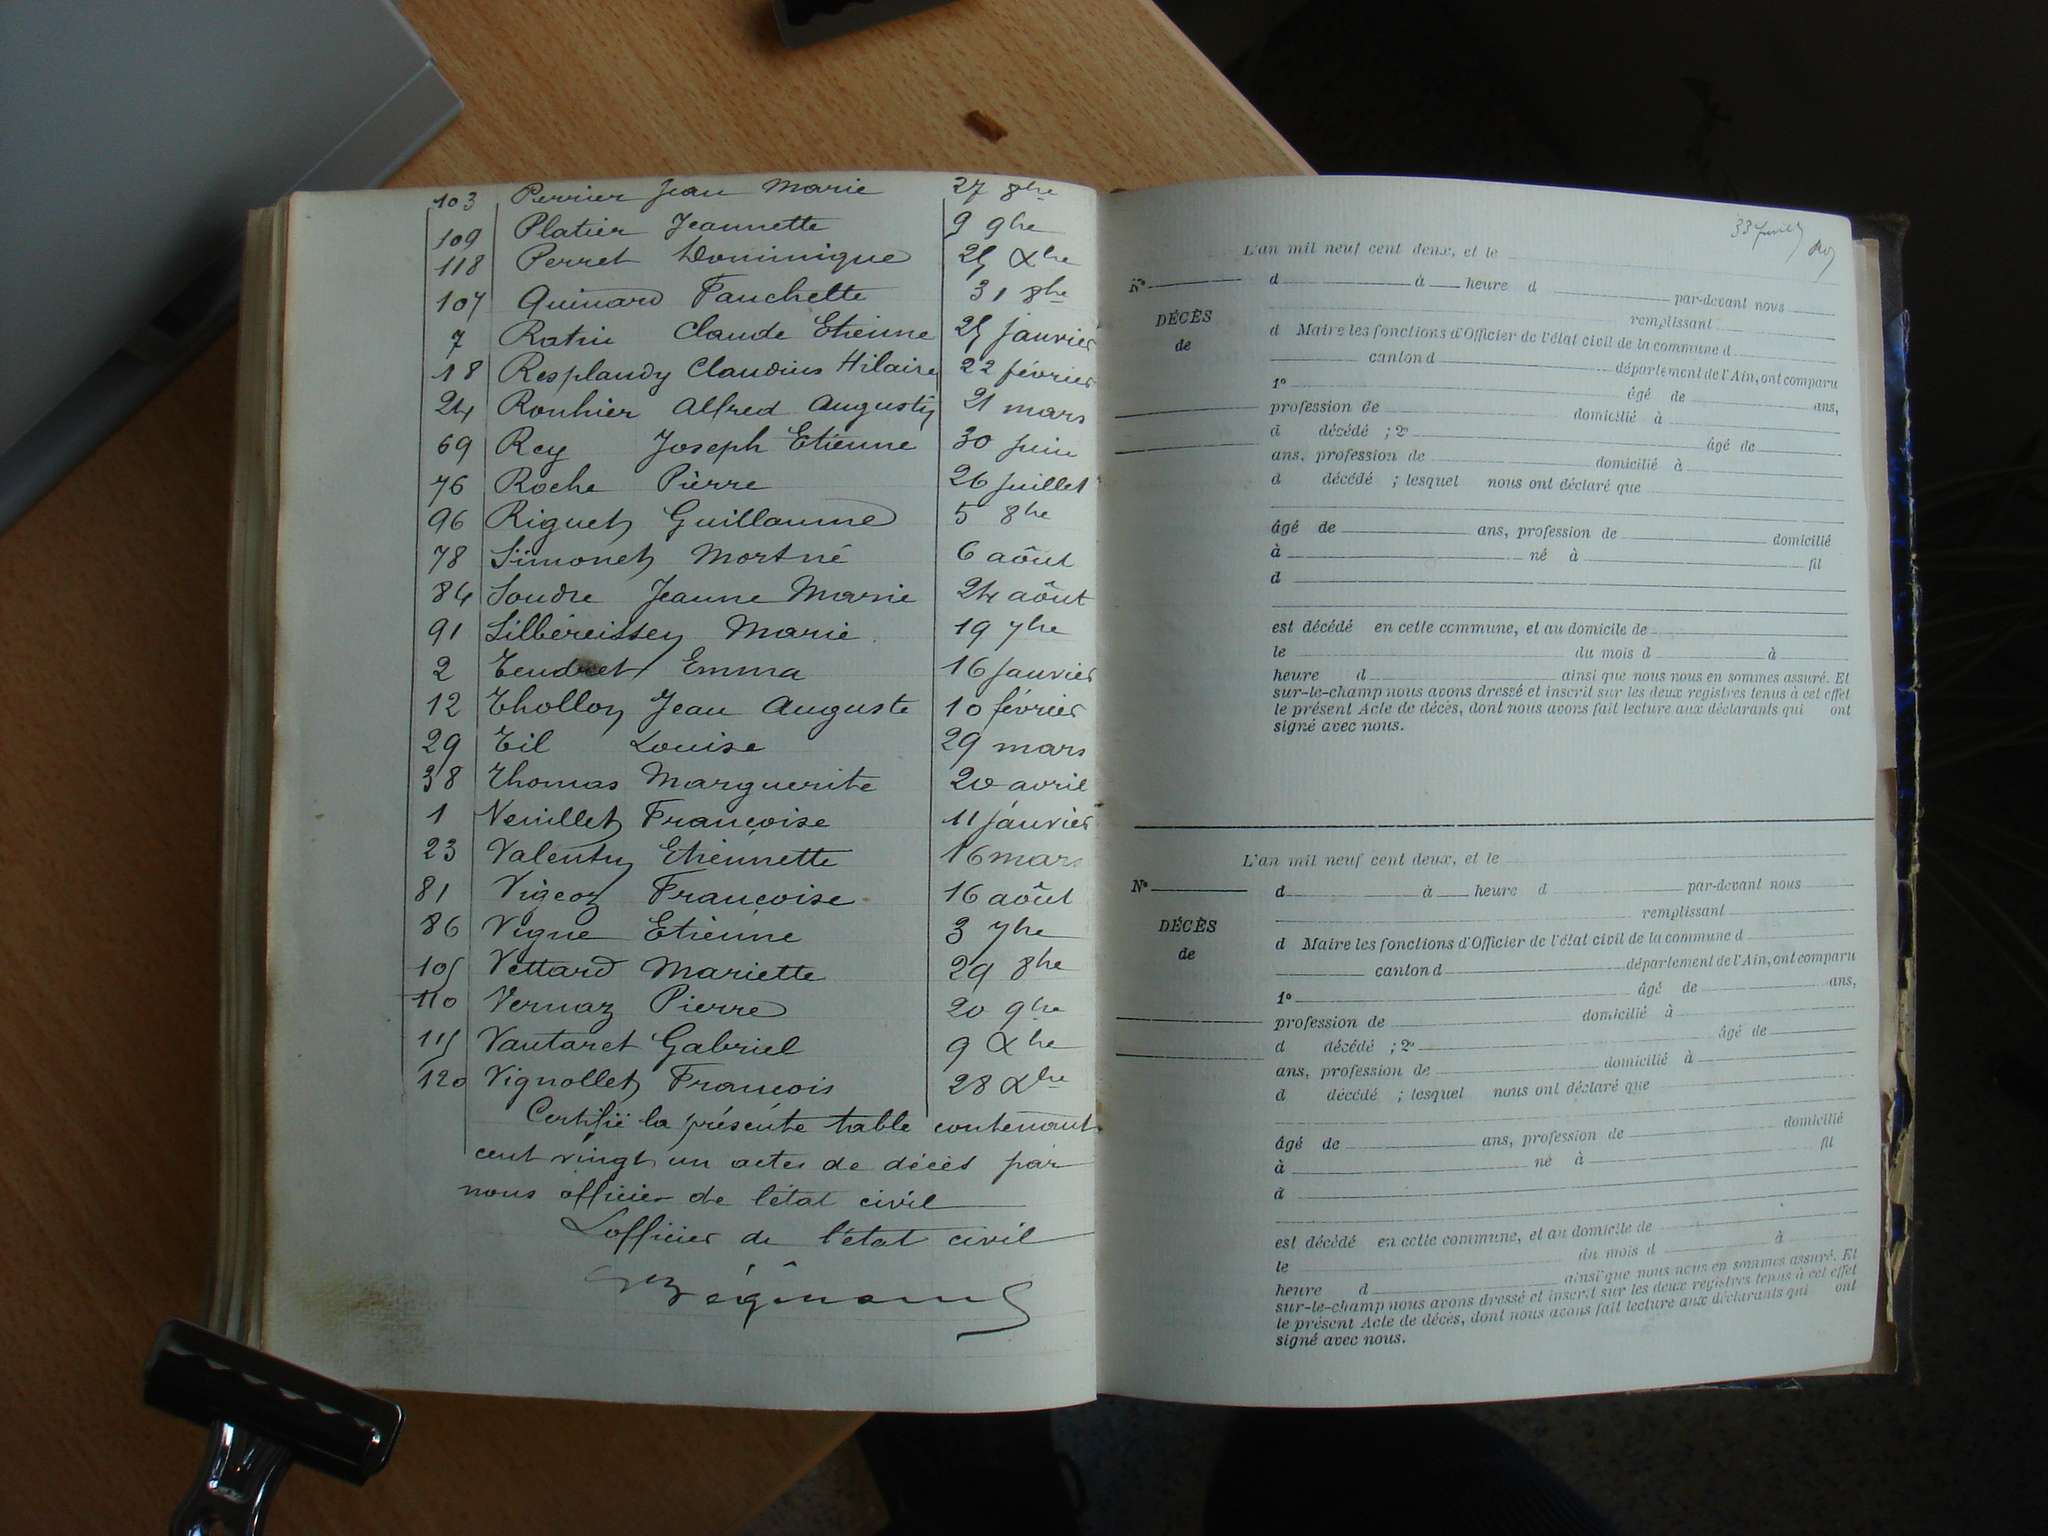 103 Perrier Jean Marie 27 8bre
109 Platier Jeannette 9 9bre
118 Perret Dominique 25 Xbre
107 Quinard Fanchette 31 8bre
7 Ratin Claude Etienne 25 janvier
18 Resplandy Claudius Hilaire 22 février
24 Rouhier Alfred Augustin 21 mars
69 Rey Joseph Etienne 30 Juin
76 Roche Pierre 26 Juillet
96 Riguet Guillaume 5 8bre
78 Simonet Mortné 6 aôut
84 Soudre Jeanne Marie 24 aôut
91 Silbereissen Marie 19 7bre
2 Tendret Emma 16 Janvier
12 Thollon Jean Auguste 10 février
29 Til Louise 29 mars
38 Thomas Marguerite 20 avril
1 Veuillet Françoise 11 janvier
23 Valentin Etiennette 16 mars
81 Vigeoz Françoise 16 aôut
86 Vigne Etienne 3 7bre
105 Vettard Mariette 29 8bre
110 Vernaz Pierre 20 9bre
115 Vautaret Gabriel 9 Xbre
120 Vignollet François 28 Xbre
Certifié la présente table contenant
cent vingt un actes de décès par
nous officier de l'état civil
L'officier de l'état civil
L'an mil neuf cent deux, et le
N° d à heure d par-devant nous
DÉCÈS remplissant
de d Maire les fonctions d'Officier de l'état civil de la commune d
canton d département de l'Ain, ont comparu
1° âgé de ans,
profession de domicilié à
d décédé ; 2° âgé de
ans, profession de domicilié à
d décédé ; lesquel nous ont déclaré que
âgé de ans, profession de domicilié
à né à fil
d
est décédé en cette commune, et au domicile de
le du mois d à
heure d ainsi que nous nous en sommes assuré. Et
sur-le-champ nous avons dressé et inscrit sur les deux registres tenus à cet effet
le présent Acte de décès, dont nous avons fait lecture aux déclarants qui ont
signé avec nous.
L'an mil neuf cent deux, et le
N° d à heure d par-devant nous
DÉCÈS remplissant
de d Maire les fonctions d'Officier de l'état civil de la commune d
canton d département de l'Ain, ont comparu
1° âgé de ans,
profession de domicilié à
d décédé ; 2° âgé de
ans, profession de domicilié à
d décédé ; lesquel nous ont déclaré que
âgé de ans, profession de domicilié
à né à fil
d
est décédé en cette commune, et au domicile de
le du mois d à
heure d ainsi que nous nous en sommes assuré. Et
sur-le-champ nous avons dressé et inscrit sur les deux registres tenus à cet effet
le présent Acte de décès, dont nous avons fait lecture aux déclarants qui ont
signé avec nous.